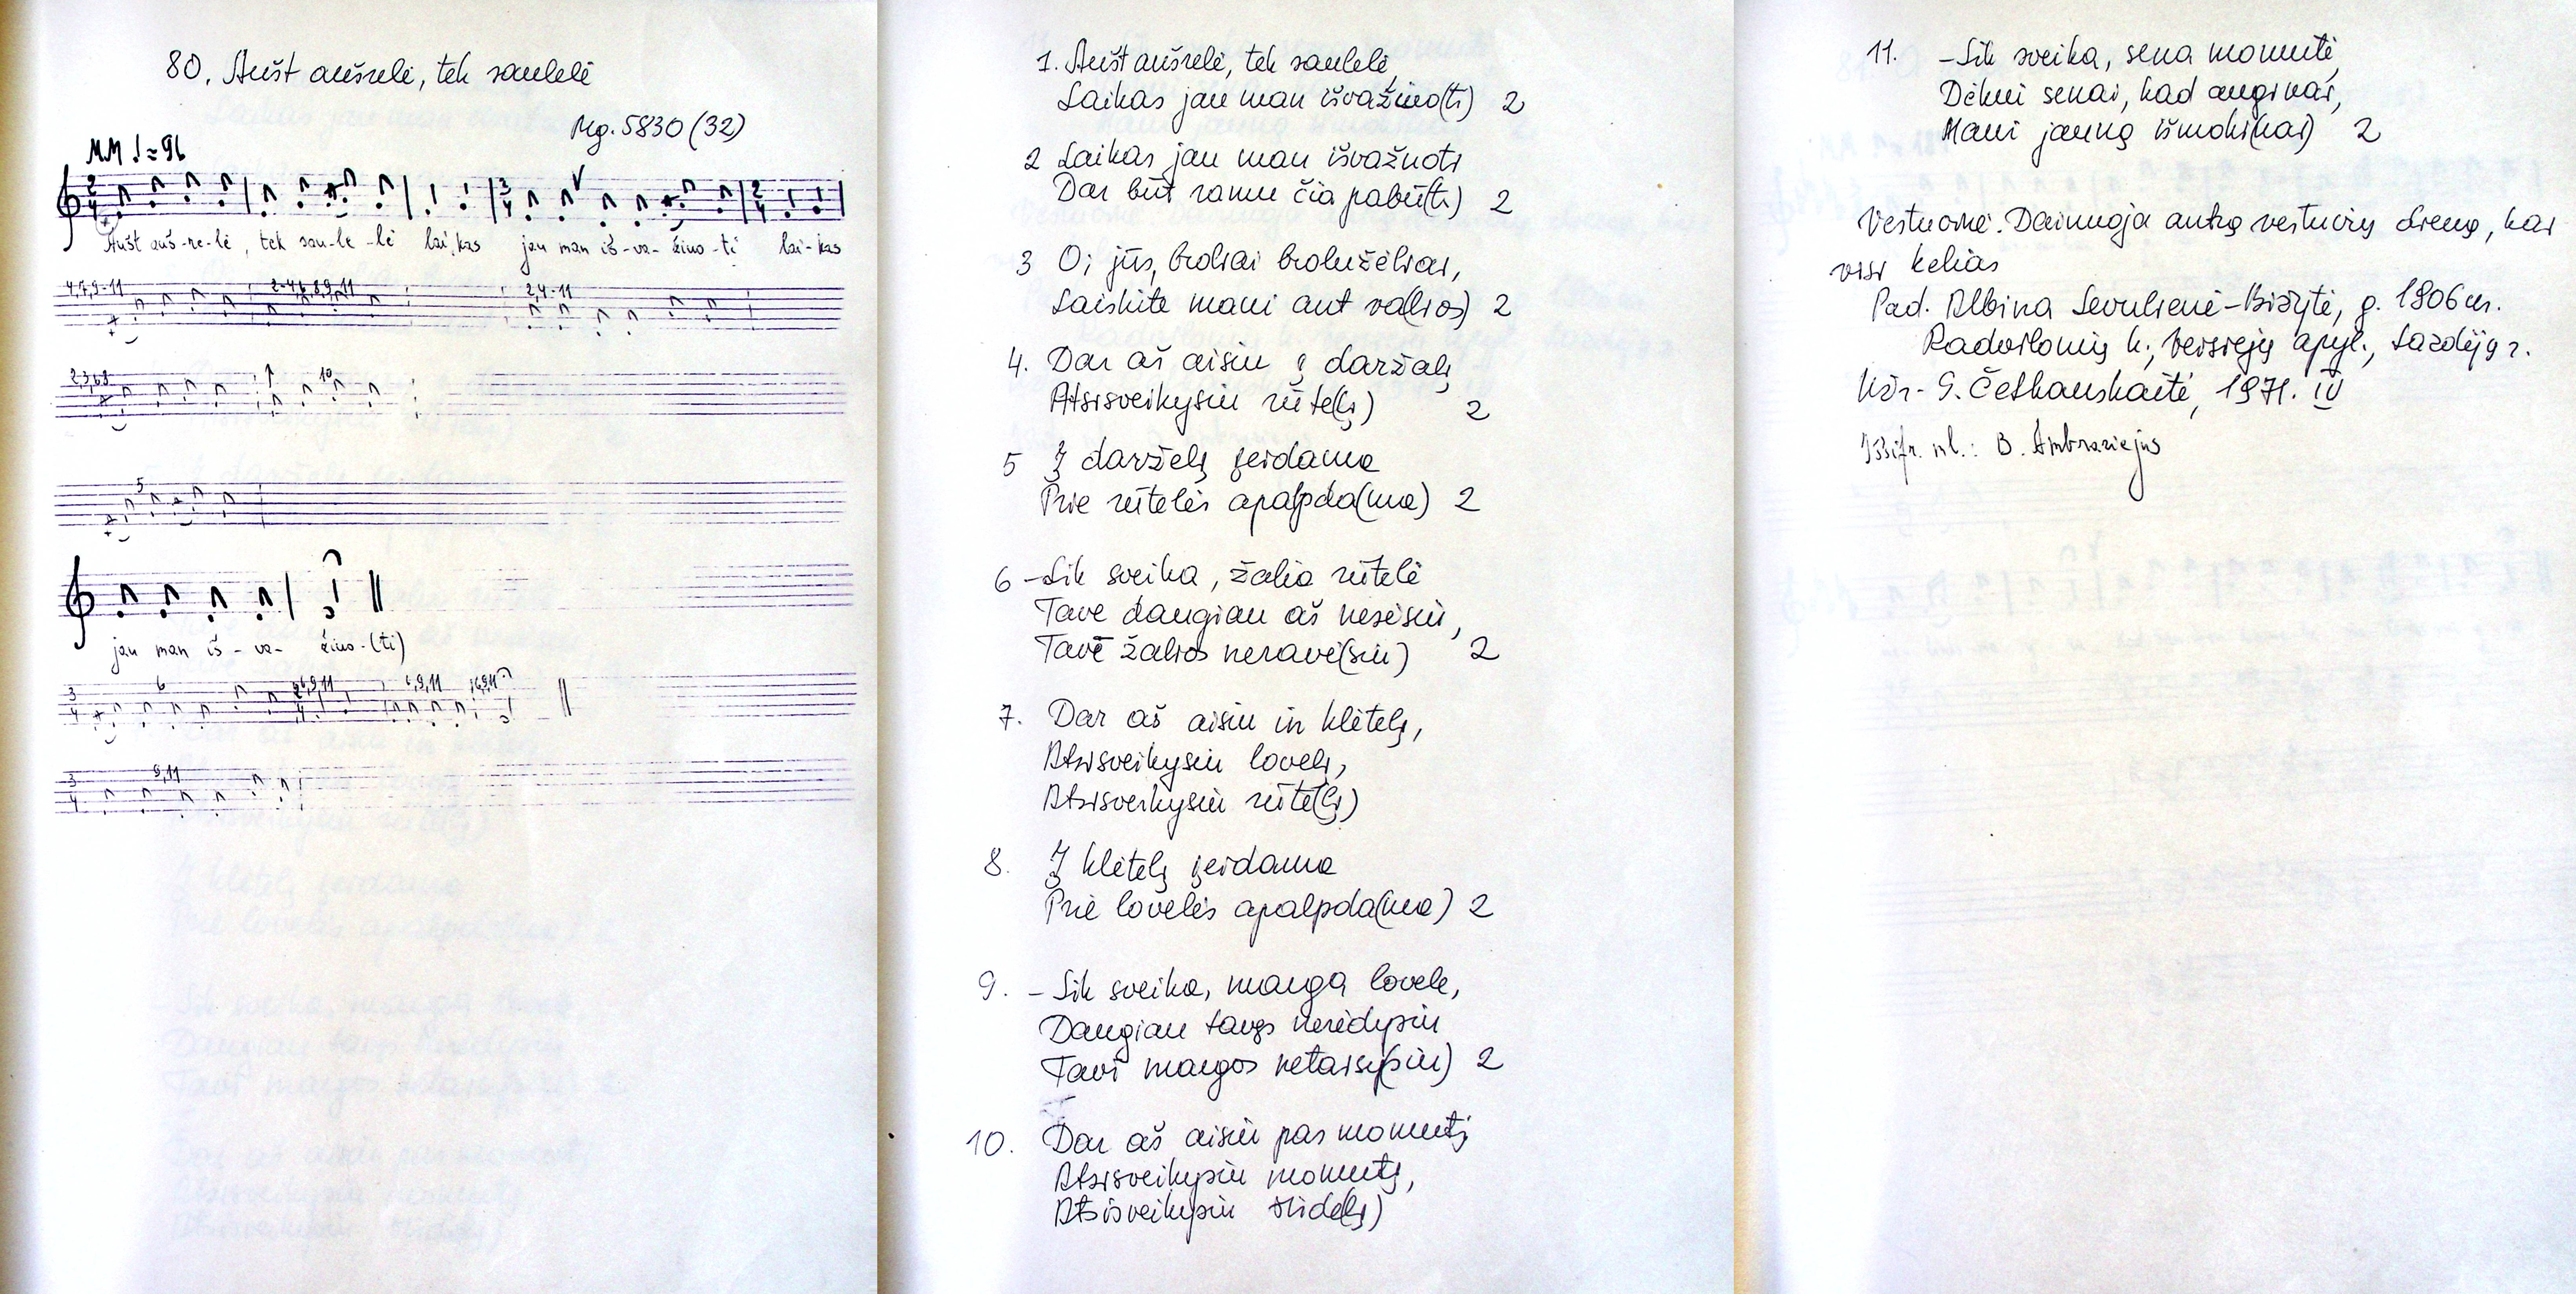 80. Aušt aušrelė, tek saulelė
Mg. 5830 (32)
MM ♩ = 96
Aušt auš-re-lė, tek sau-le-lė lai,kas jau man iš-va-žiuo-ti lai-kas
4,7,9-11 2-4,6,8,9,11 2,4-11
2,3,6,8 10
5
jau man iš-va-žiuo-(ti)
6 6,9,11
9,11
1. Aušt aušrelė, tek saulelė,
Laikas jau man išvažiuo(ti) 2
2 Laikas jau man išvažuoti
Dar būt ramu čia pabū(ti) 2
3 Oi jūs, broliai brolužėliai,
Laiskite mani ant va(lios) 2
4. Dar aš aisiu į daržalį
Atsisveikysiu rūte(lį) 2
5 Į darželį įeidama
Prie rūtelės apalpda(ma) 2
6 -Lik sveika, žalia rūtelė
Tave daugiau aš nesėsiu,
Tavē žalios neravė(siu) 2
7. Dar aš aisiu in klėtelį,
Atsisveikysiu lovelį,
Atsisveikysiu rūte(lį)
8. Į klėtelį įeidama
Prie lovelės apalpda(ma) 2
9. - Lik sveika, marga lovele,
Daugiau tavęs nerėdysiu
Tavi margos netaisy(siu) 2
10. Dar aš aisiu pas momutį
Atsisveikysiu momutį,
Atsisveikysiu širde(lį)
11. -Lik sveika, sena momutė,
Dėkui senai, kad auginai,
Mani jauną išmoki(nai) 2
Vestuvinė. Dainuoja antrą vestuvių dieną, kai
visi kelias
Pad. Albina Sevulienė-Bižytė, g. 1906 m.
Radvilonių k., Veisiejų apyl., Lazdijų r.
Užr. G. Četkauskaitė, 1971. IV
Iššifr. ml.: B. Ambraziejus